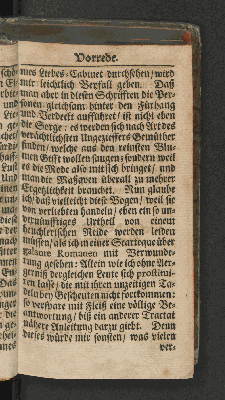 Vorrede.
mes Liebes-Cabinet durchsehen/ wird
mir leichtlich Beyfall geben. Daß
man aber in diesen Schrifften die Per-
sonen gleichsam hinter den Fürhang
und Verdeckt aufführet/ ist nicht eben
die Sorge/ es werden sich nach Art des
verächtlichsten Ungeziefers Gemüther
finden/ welche aus den reinsten Blu-
men Gifft wollen saugen/ sondern weil
es die Mode also mit sich bringet/ und
man die Masquen überall zu mehrer
Ergetzlichkeit brauchet. Nun glaube
ich/ daß vielleicht diese Bogen/ weil sie
von verliebten handeln/ eben ein so un-
vernünfftiges Urtheil von einem
heuchlerischen Neide werden leiden
müssen/ als ich in einer Scarteque über
galante Romanen mit Verwunde-
rung gesehen: Allein wie ich ohne Ver-
dergleichen Leute sich prostitui-
ren lasse/ die mit ihren unzeitigen Ta-
deln bey Gescheuten nicht fortkommen:
so verspare mit Fleiß eine völlige Be-
antwortung/ biß ein anderer Tractat
nähere Anleitung darzu giebt. Denn
dieses würde mir sonsten/ was vielen
ver-